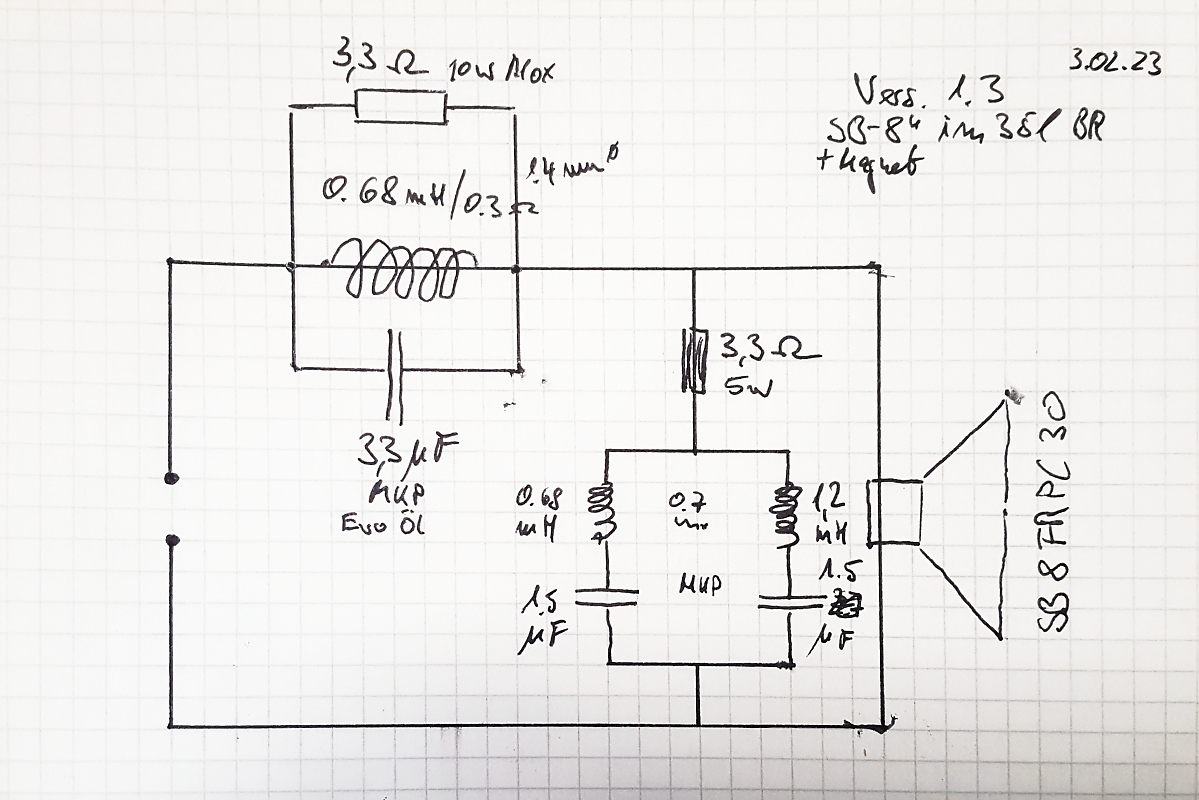 3,3 Ω 10W Mox
3.02.23
Vers. 1.3
SB-8" im 38l BR
+ Magnet
1.4 mm ø
0.68 mH/0.3 Ω
3,3 Ω
5W
3,3 µF
MKP
Evo Öl
0.68
mH
0.7
1,2
mH
1.5
µF
MKP
1.5
µF
SB 8 FRPC 30